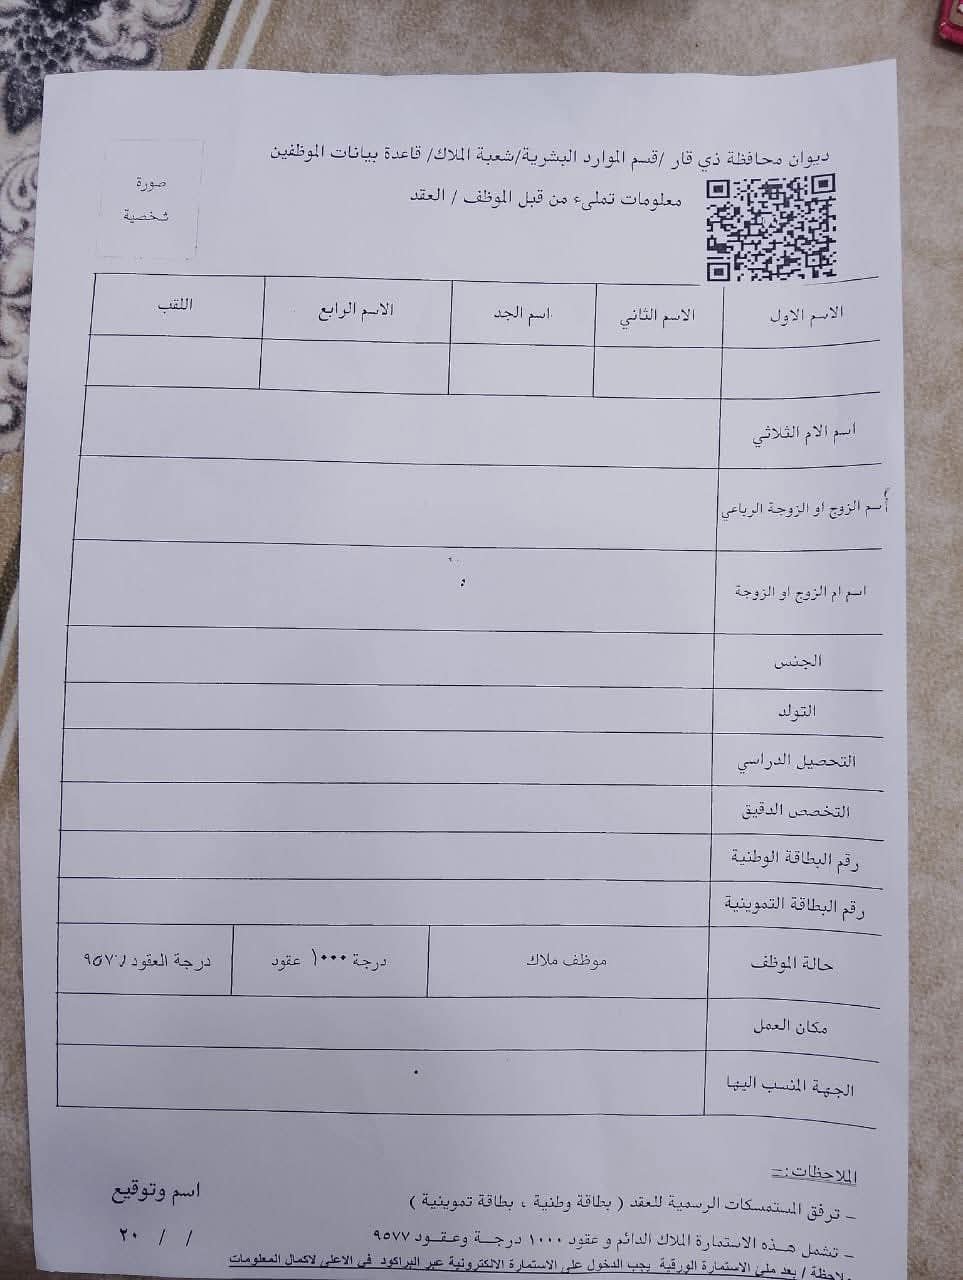 ديوان محافظة ذي قار /قسم الموارد البشرية/شعبة الملاك/ قاعدة بيانات الموظفين
معلومات تملىء من قبل الموظف / العقد
صورة
شخصية
الاسم الاول
الاسم الثاني
اسم الجد
الاسم الرابع
اللقب
اسم الام الثلاثي
أسم الزوج او الزوجة الرباعي
اسم ام الزوج او الزوجة
الجنس
التولد
التحصيل الدراسي
التخصص الدقيق
رقم البطاقة الوطنية
رقم البطاقة التموينية
حالة الموظف
موظف ملاك
درجة ١٠٠٠ عقود
درجة العقود
مكان العمل
الجهة المنسب اليها
الملاحظات:-
– ترفق المستمسكات الرسمية للعقد ( بطاقة وطنية ، بطاقة تموينية )
– تشمل هذه الاستمارة الملاك الدائم و عقود ١٠٠٠ درجة وعقود ٩٥٧٧
ملاحظة / بعد ملئ الاستمارة الورقية يجب الدخول على الاستمارة الالكترونية عبر الباركود في الاعلى لاكمال المعلومات
اسم وتوقيع
/ / ٢٠